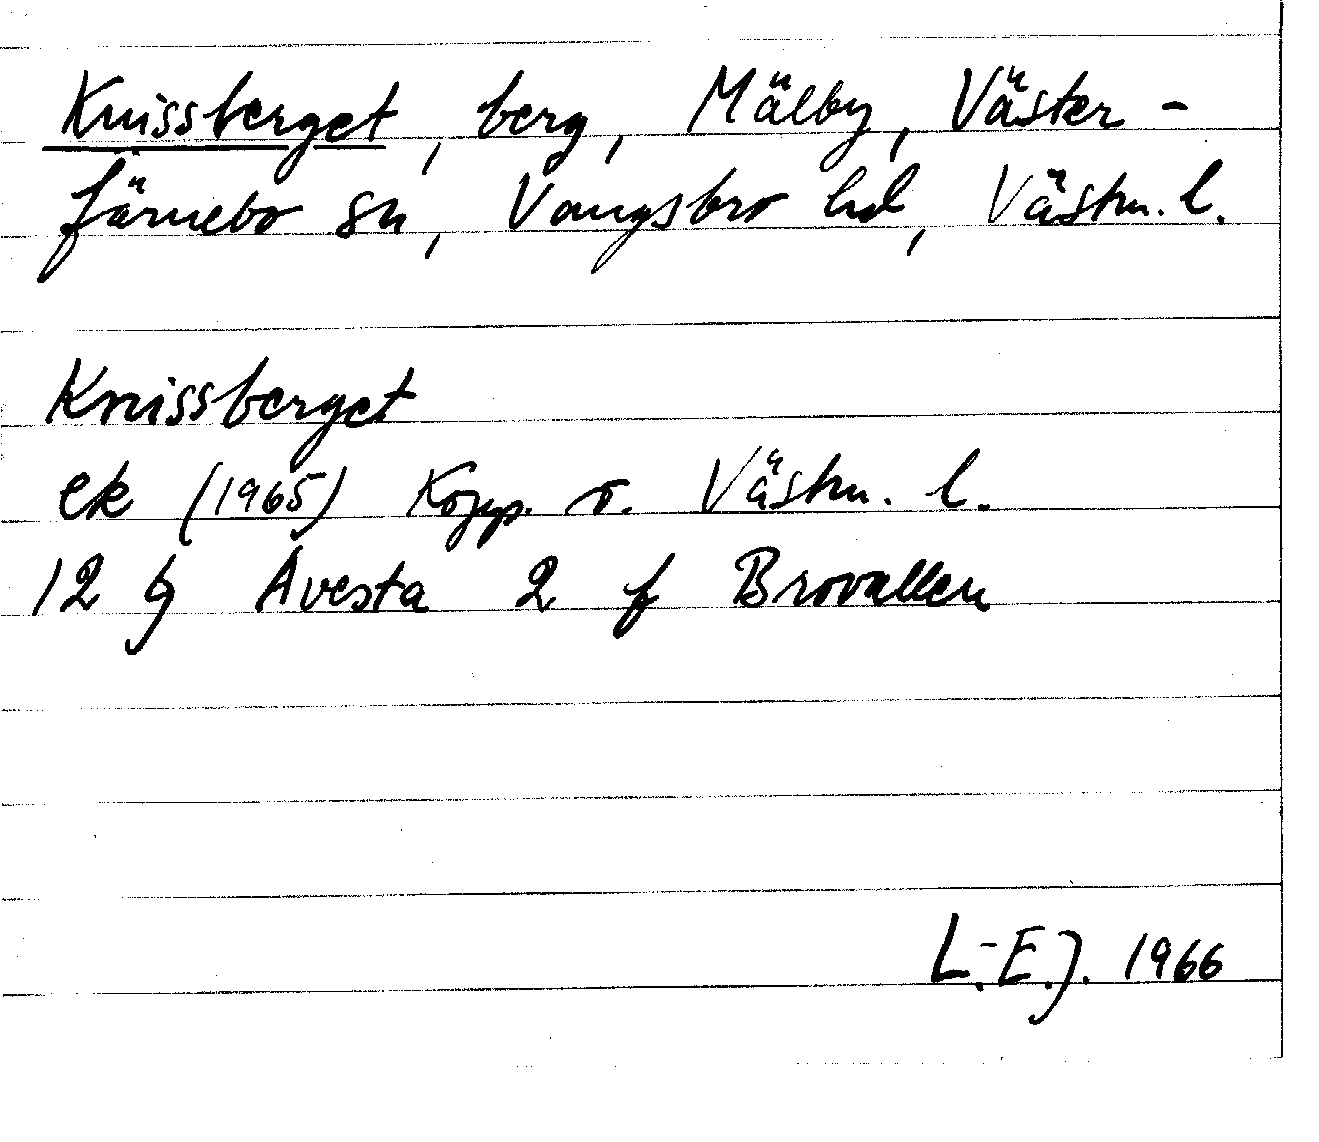 Knissberget, berg, Mälby, Väster-
färnebo sn, Vangsbro hd, Västm. l.
Knissberget
ek (1965) Kopp. o. Västm. l.
12 g Avesta 2 f Brovallen
L.-E.J. 1966